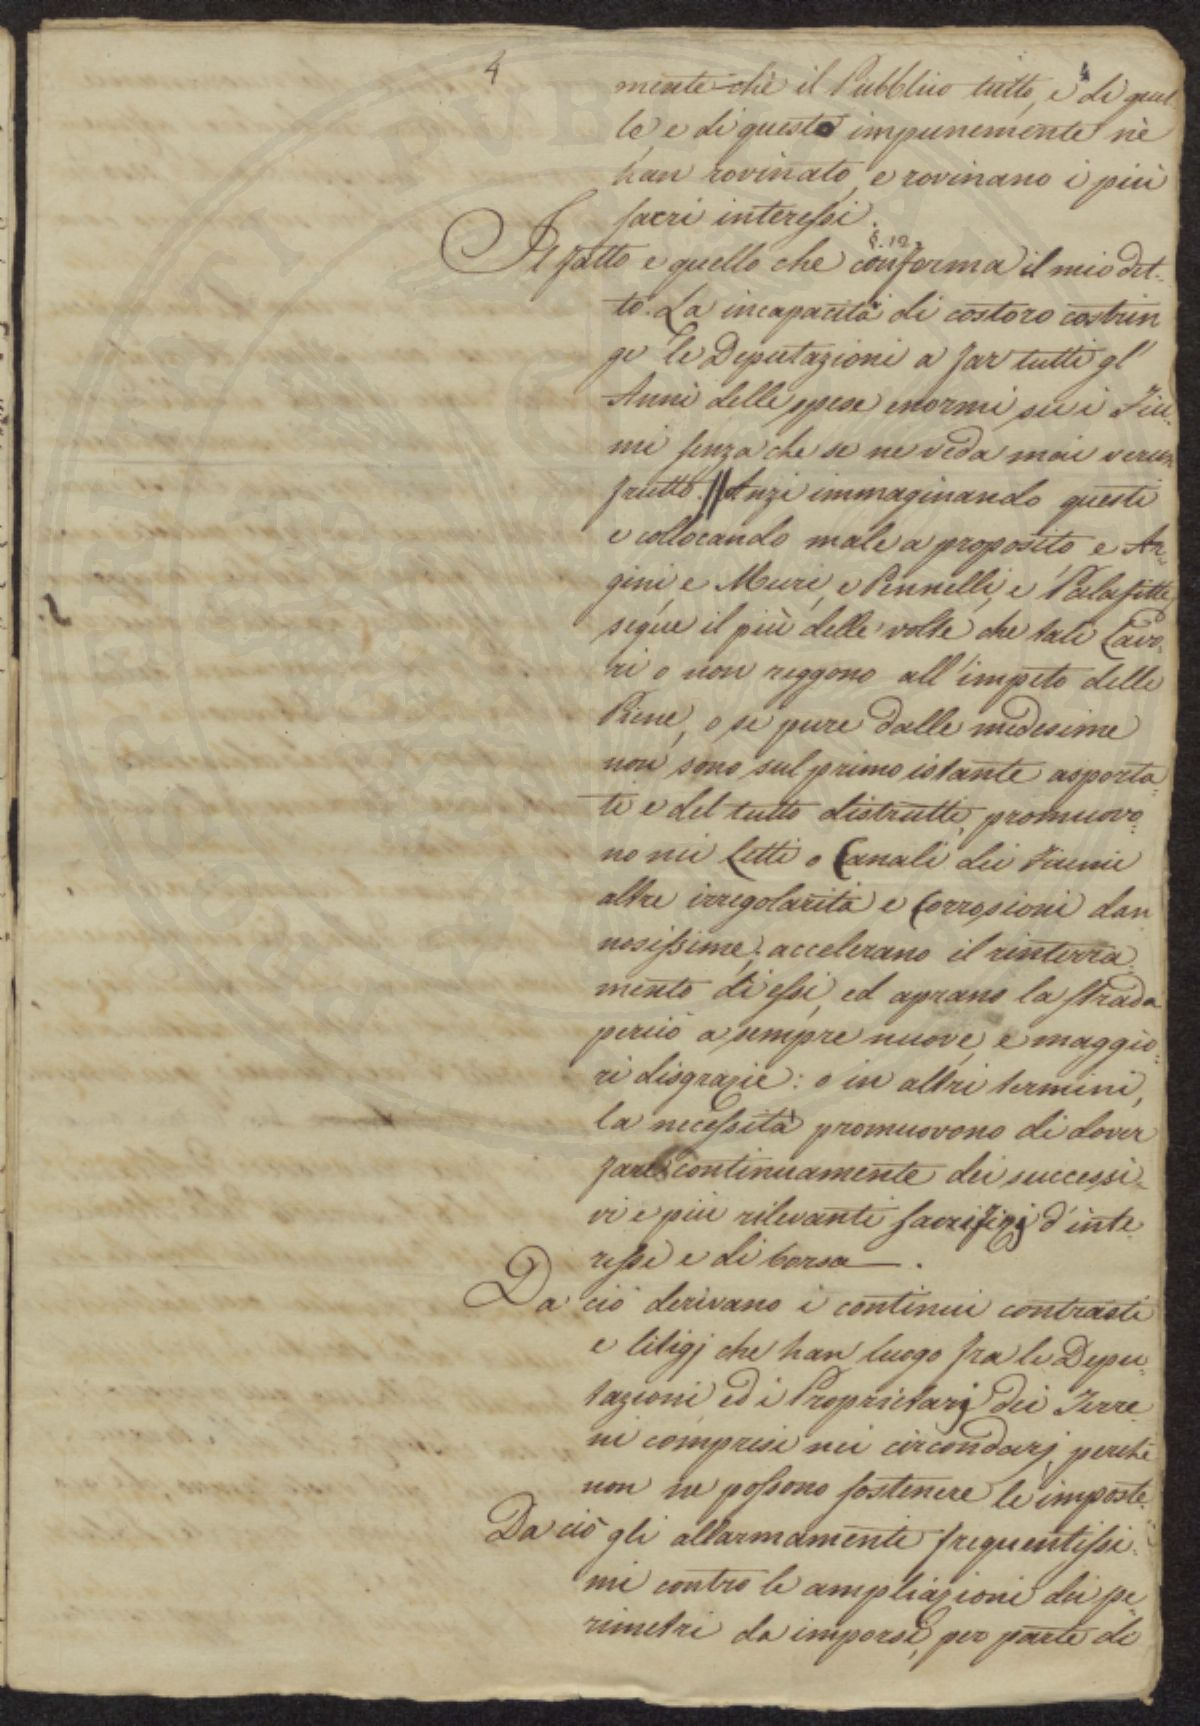 4
4
mente che il Pubblico tutto, e di quel
le, e di questo impunemente nè
han rovinato, e rovinano i più
sacri interessi.
§. 12.
Il fatto e quello che conferma il mio det-
to. La incapacità di costoro costrin
ge le Deputazioni a far tutti gl'
Anni delle spese enormi su i Fiu-
mi senza che se ne veda mai verun
frutto. // Anzi immaginando questi
e collocando male a proposito, e Ar-
gini, e Muri, e Pennelli, e Palafitte
segue il più delle volte che tali Lavo-
ri o non reggono all'impeto delle
Piene, o se pure dalle medesime
non sono sul primo istante asporta-
ti e del tutto distrutti, promuovo-
no nei Letti o Canali dei Fiumi
altre irregolarità e Corrosioni dan
nosissime; accelerano il rinterra-
mento di essi, ed aprano la strada
perciò a sempre nuove, e maggio-
ri disgrazie: o in altri termini,
la necessità promuovono di dover
fare continuamente dei successi-
vi e più rilevanti sacrifizj d'inte
resse e di borsa.
Da ciò derivano i continui contrasti
e litigj che han luogo fra le Depu-
tazioni ed i Proprietarj dei Terre
ni compresi nei circondarj, perchè
non ne possono sostenere le imposte.
Da ciò gli allarmamenti frequentissi-
mi contro le ampliazioni dei pe
rimetri da imporsi, per parte di